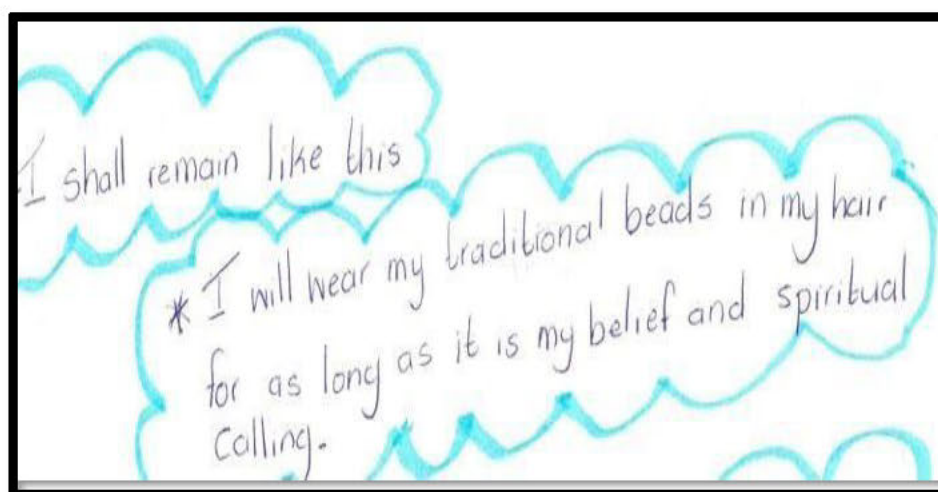 I shall remain like this
* I will wear my traditional beads in my hair
for as long as it is my belief and spiritual
calling.